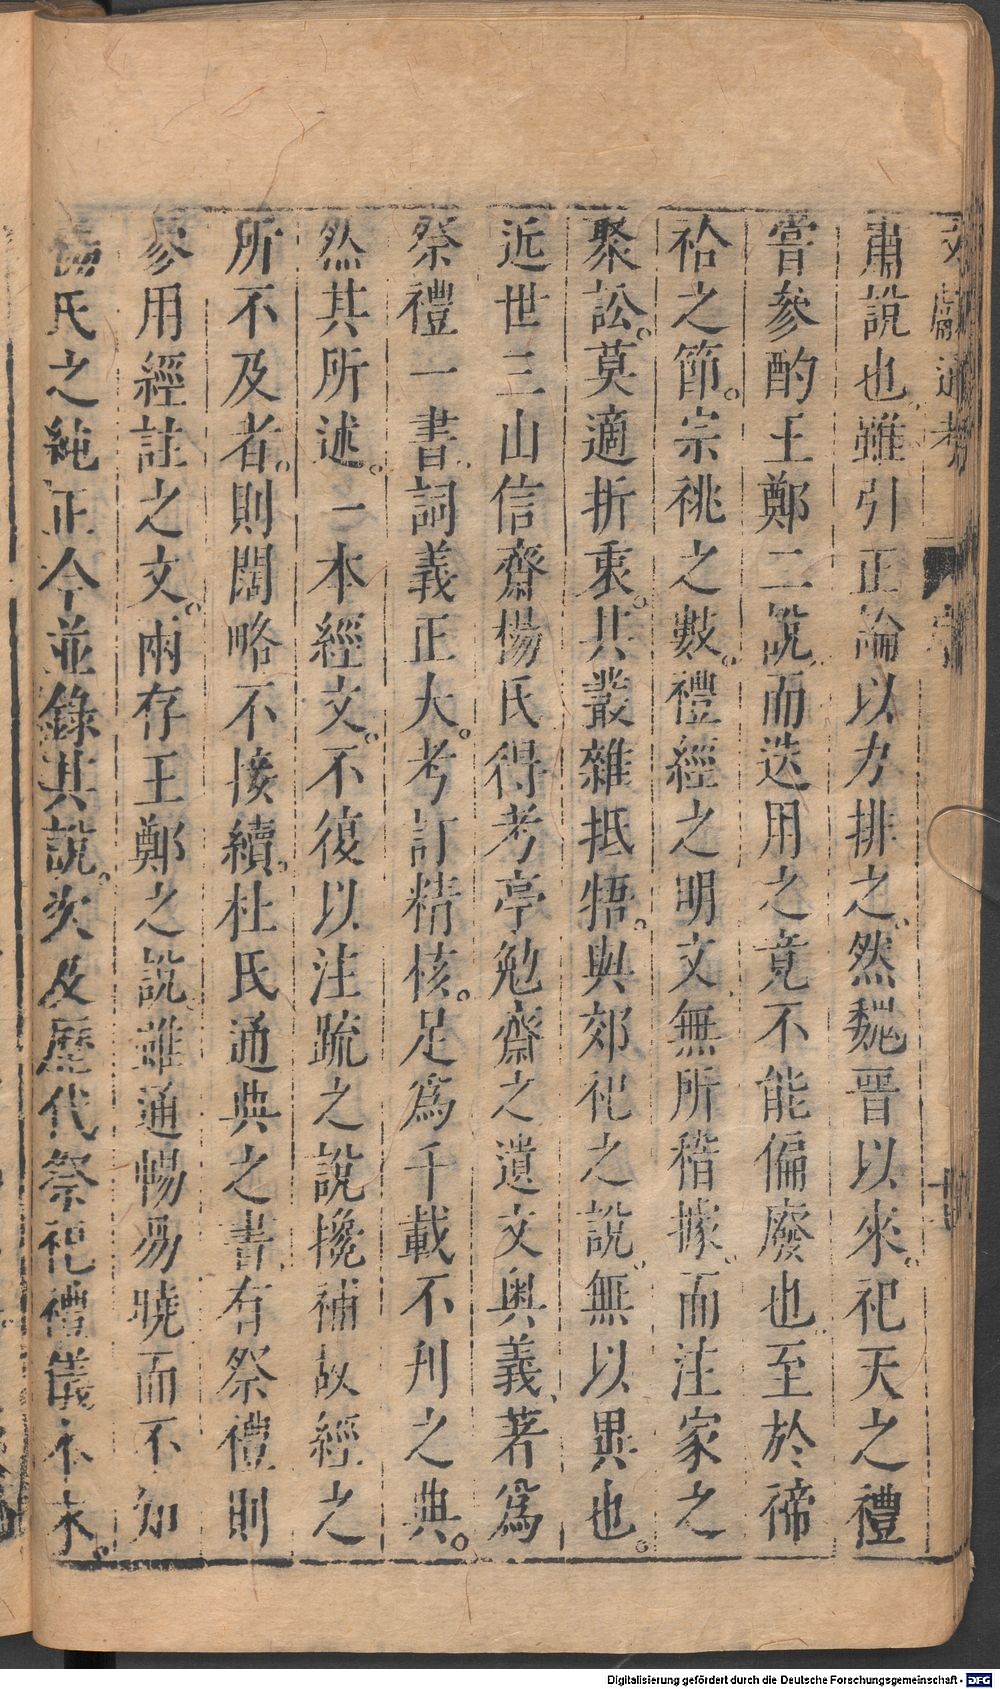 文獻通考
肅說也雖引正論以力排之然魏晉以來祀天之禮
嘗參酌王鄭二說而迭用之竟不能偏廢也至於禘
祫之節。宗祧之數。禮經之明文無所稽據而注家之
聚訟。莫適折衷。其叢雜抵牾。與郊祀之說無以異也。
近世三山信齋楊氏得考亭勉齋之遺文奧義著爲
祭禮一書詞義正大。考訂精核。足爲千載不刋之典。
然其所述。一本經文。不復以注疏之說攙補故經之
所不及者。則闊略不接續。杜氏通典之書有祭禮則
參用經註之文。兩存王鄭之說雖通暢易曉而不如
楊氏之純正今並錄其說。次及歷代祭祀禮儀本末。
Digitalisierung gefördert durch die Deutsche Forschungsgemeinschaft - DFG